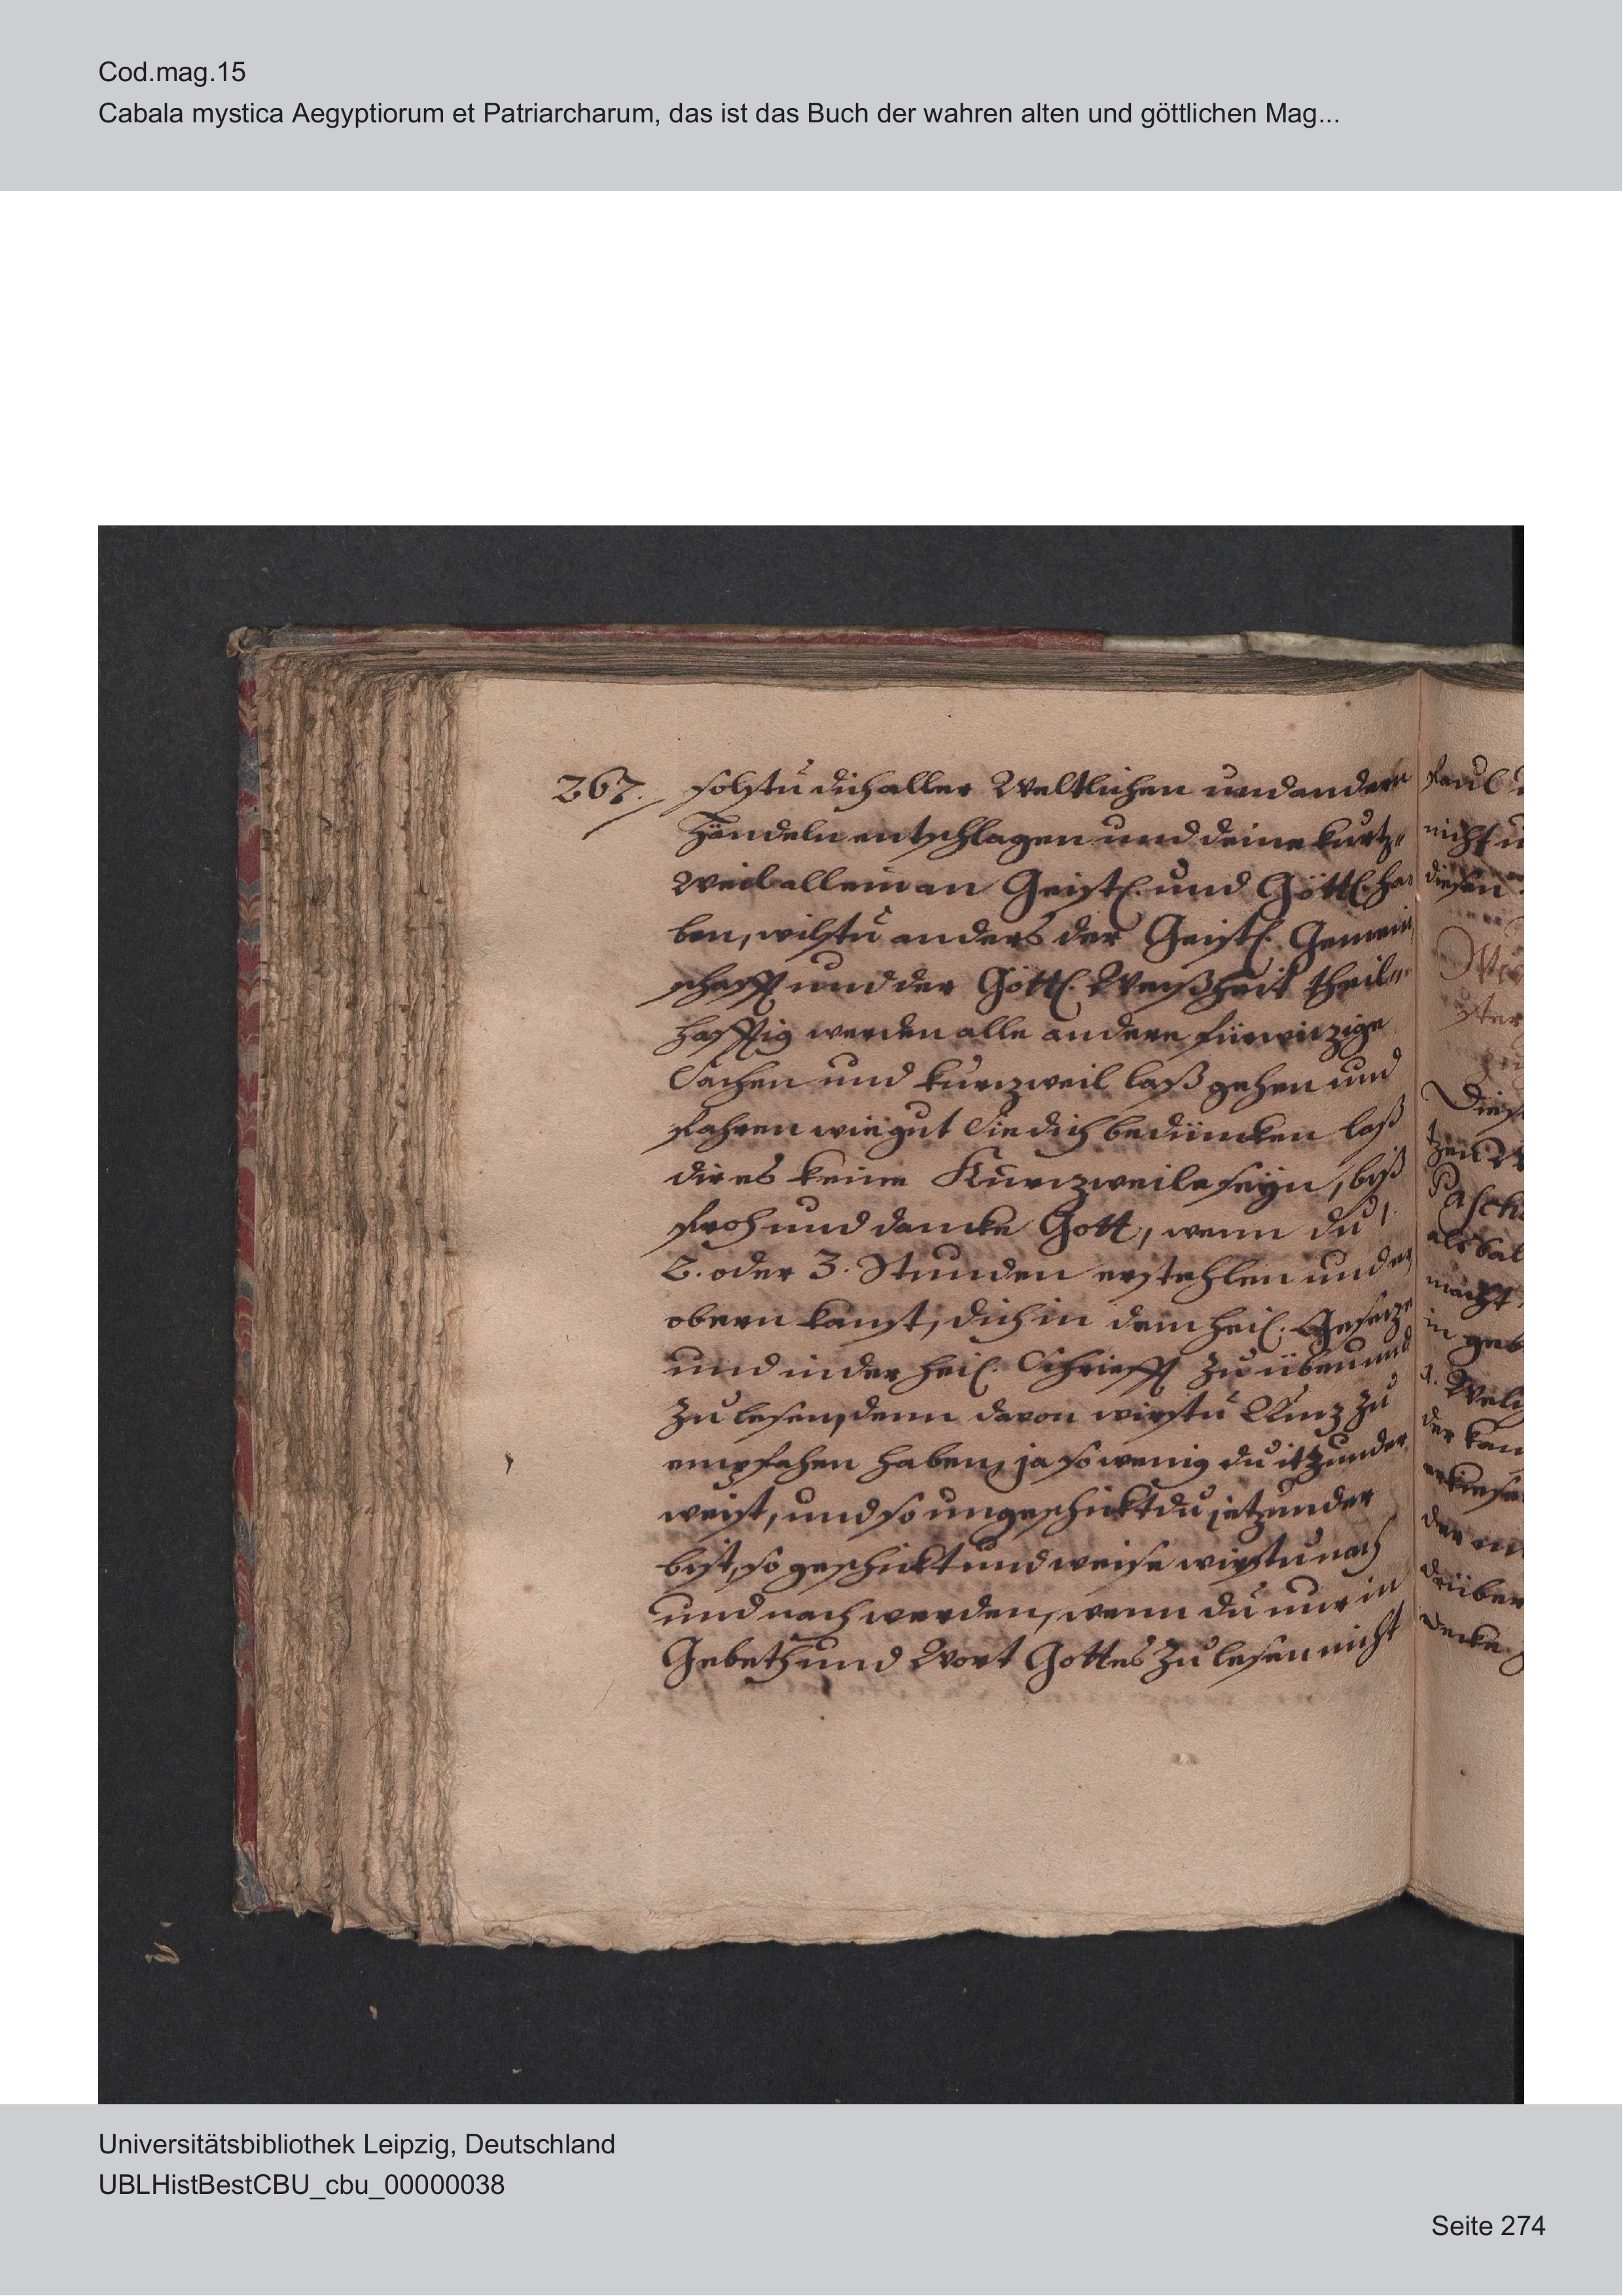 Cod.mag.15
Cabala mystica Aegyptiorum et Patriarcharum, das ist das Buch der wahren alten und göttlichen Mag...
267. solstu dich aller Weltlichen und andern
Händeln entschlagen und deine kurtz-
weil allein an Geistl. und Göttl. ha-
ben, wilstu anders der Geistl. Gemein
schafft und der Göttl. Weyßheit theil-
hafftig werden alle andere fürwizige
Sachen und kurzweil laß gehen und
fahren wie gut Sie dich bedüncken laß
dir es keine Kurzweile seyn, biß
froh und dancke Gott, wenn du 1.
2. oder 3. Stunden erstehlen und er
obern kanst, dich in dem heil. Gesetze
und in der heil. Schriefft zu üben und
zu lesen, denn davon wirstu Nuz zu
empfahen haben, ja so wenig du itzunder
weist, und so ungeschickt du jetzunder
bist, so geschickt und weise wirstu nach
und nach werden, wenn du nur in
Gebeth und Wort Gottes zu lesen nicht
faul
nicht
diesen
Pasch
als bal
macht
in geb
der kan
drüber
decke
Universitätsbibliothek Leipzig, Deutschland
UBLHistBestCBU_cbu_00000038
Seite 274